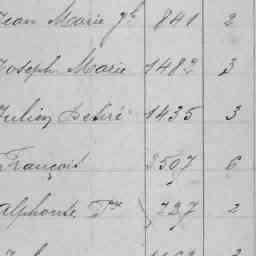 Jean Marie 841 2
Joseph Marie 1482 3
Julien Désiré 1435 3
François 3507 6
Alphonse 727 2